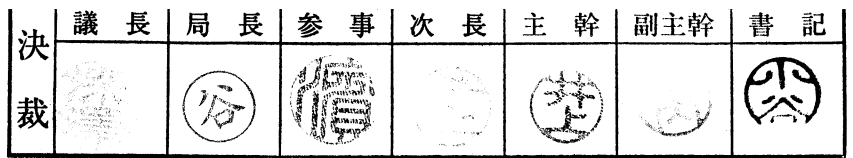 決裁
議長 局長 参事 次長 主幹 副主幹 書記
谷 濱 井上